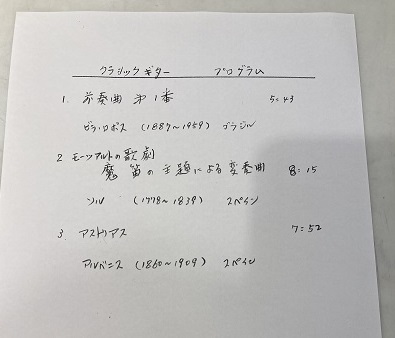 クラシックギター プログラム
1. 前奏曲 第1番 5:43
ビラ・ロボス (1887〜1959) ブラジル
2 モーツアルトの歌劇
魔笛の主題による変奏曲 8:15
ソル (1778〜1839) スペイン
3. アストリアス 7:52
アルベニス (1860〜1909) スペイン